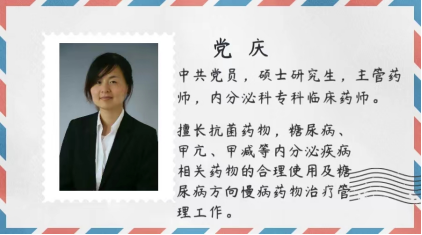 党 庆
中共党员，硕士研究生，主管药
师，内分泌科专科临床药师。
擅长抗菌药物，糖尿病、
甲亢、甲减等内分泌疾病
相关药物的合理使用及糖
尿病方向慢病药物治疗管
理工作。